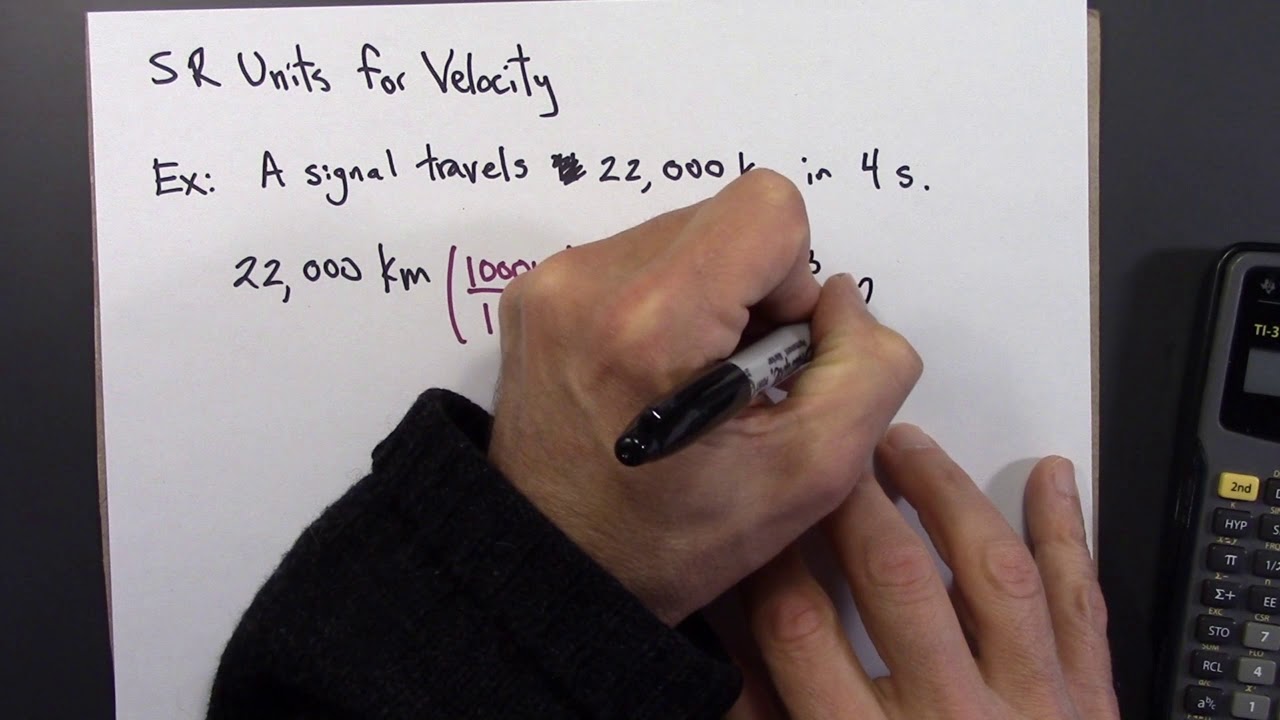 SR Units for Velocity
Ex: A signal travels 22,000 in 4 s.
22,000 km (1000
1
3
TI-3
2nd
HYP
π 1/
Σ+ EE
EXC CSR
STO 7
RCL 4
1